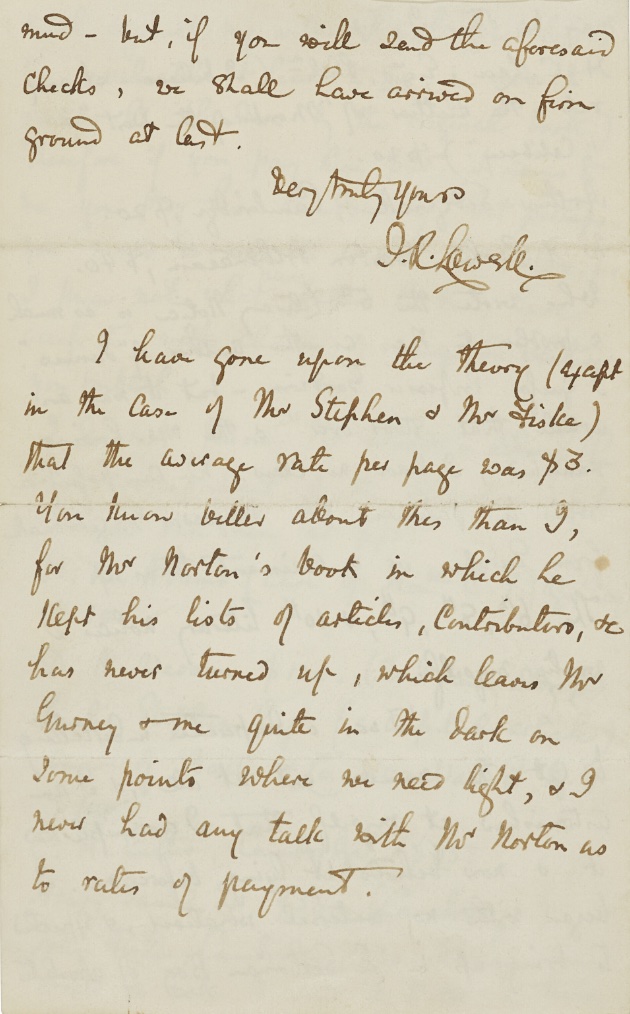 mud – but, if you will send the aforesaid
checks, we shall have arrived on firm
ground at last.
Very truly yours
J. R. Lowell.
I have gone upon the theory (except
in the case of Mr Stephen & Mr Fiske)
that the average rate per page was $3.
You know better about this than I,
for Mr Norton's book in which he
kept his lists of articles, contributors, &c
has never turned up, which leaves Mr
Gurney & me quite in the dark on
some points where we need light, & I
never had any talk with Mr Norton as
to rates of payment.